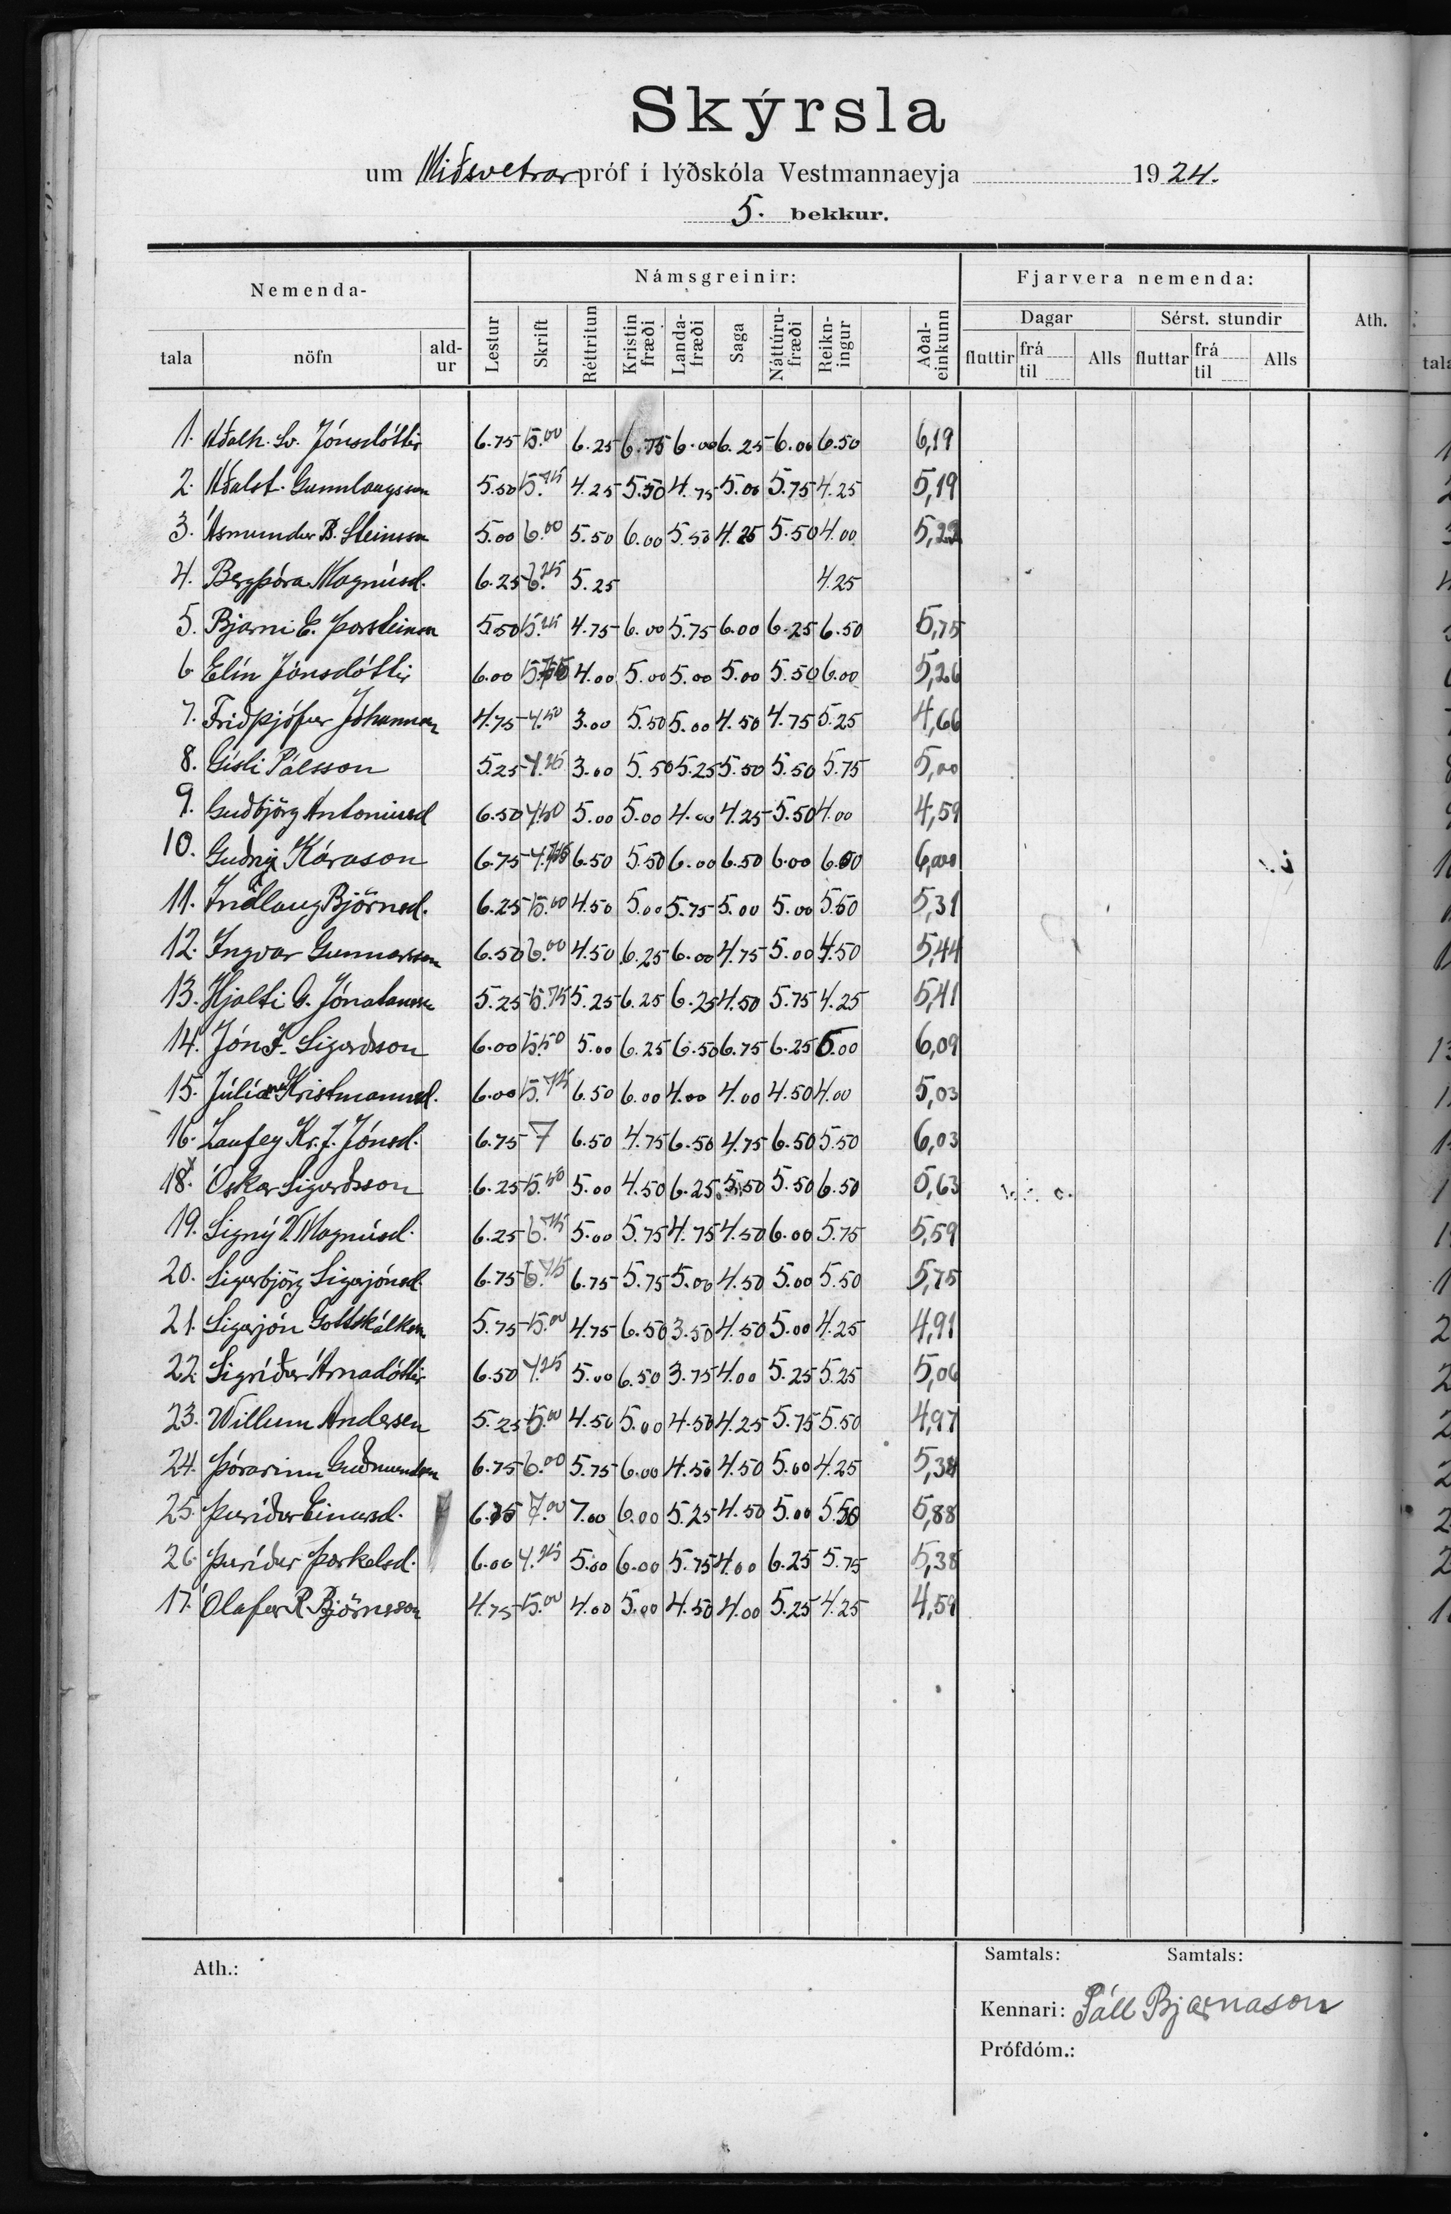 Skýrsla
um Miðsvetrar próf í lýðskóla Vestmannaeyja 1924.
5. bekkur.
Nemenda- Námsgreinir: Fjarvera nemenda: Ath.
Dagar Sérst. stundir
tala nöfn ald-ur Lestur Skrift Réttritun Kristin fræði Landa-fræði Saga Náttúru-fræði Reikn-ingur Aðal-einkunn fluttir frá til Alls fluttar frá til Alls
1. Aðalh. Sv. Jónsdóttir 6.75 5.00 6.25 6.75 6.00 6.25 6.00 6.50 6,19
2. Aðalst. Gunnlaugsson 5.50 5.75 4.25 5.50 4.75 5.00 5.75 4.25 5,19
3. Ásmundur B. Steinsson 5.00 6.00 5.50 6.00 5.50 4.25 5.50 4.00 5,22
4. Bergþóra Magnúsd. 6.25 6.25 5.25 4.25
5. Bjarni E. Þorsteinsson 5.50 5.25 4.75 6.00 5.75 6.00 6.25 6.50 5,75
6. Elín Jónsdóttir 6.00 4.00 5.00 5.00 5.00 5.50 6.00 5,26
7. Friðþjófur Jóhannsson 4.75 4.50 3.00 5.50 5.00 4.50 4.75 5.25 4,66
8. Gísli Pálsson 5.25 4.25 3.00 5.50 5.25 5.50 5.50 5.75 5,00
9. Guðbjörg Antoníusd 6.50 4.50 5.00 5.00 4.00 4.25 5.50 4.00 4,59
10. Guðni Kárason 6.75 4.75 6.50 5.50 6.00 6.50 6.00 6.50 6,00
11. Indlaug Björnsd. 6.25 5.00 4.50 5.00 5.75 5.00 5.00 5.50 5,31
12. Ingvar Gunnarsson 6.50 6.00 4.50 6.25 6.00 4.75 5.00 4.50 5,44
13. Hjalti G. Jónatansson 5.25 5.75 5.25 6.25 6.25 4.50 5.75 4.25 5,41
14. Jón F. Sigurðsson 6.00 5.50 5.00 6.25 6.50 6.75 6.25 6.00 6,09
15. Júlíana Kristmannsd. 6.00 5.75 6.50 6.00 4.00 4.00 4.50 4.00 5,03
16. Laufey Kr. J. Jónsd. 6.75 7 6.50 4.75 6.50 4.75 6.50 5.50 6,03
18. Óskar Sigurðsson 6.25 5.50 5.00 4.50 6.25 5.50 5.50 6.50 5,63
19. Signý V. Magnúsd. 6.25 6.75 5.00 5.75 4.75 4.50 6.00 5.75 5,59
20. Sigurbjörg Sigurjónsd. 6.75 6.75 6.75 5.75 5.00 4.50 5.00 5.50 5,75
21. Sigurjón Gottskálksson 5.75 5.00 4.75 6.50 3.50 4.50 5.00 4.25 4,91
22. Sigríður Árnadóttir 6.50 4.25 5.00 6.50 3.75 4.00 5.25 5.25 5,06
23. Willum Andersen 5.25 5.00 4.50 5.00 4.50 4.25 5.75 5.50 4,97
24. Þórarinn Guðmundsson 6.75 6.00 5.75 6.00 4.50 4.50 5.00 4.25 5,38
25. Þuríður Einarsd. 6.75 7.00 7.00 6.00 5.25 4.50 5.00 5.50 5,88
26. Þuríður Þorkelsd. 6.00 4.25 5.00 6.00 5.75 4.00 6.25 5.75 5,38
17. Ólafur R. Björnsson 4.75 5.00 4.00 5.00 4.50 4.00 5.25 4.25 4,59
Ath.:
Samtals: Samtals:
Kennari: Páll Bjarnason
Prófdóm.: